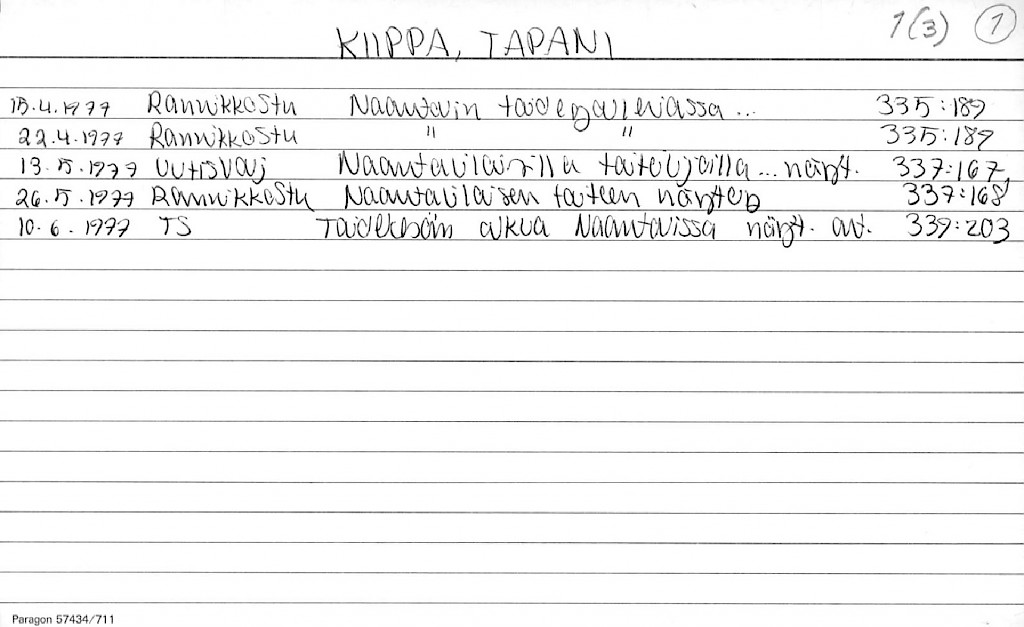 1(3) 1
KIIPPA, TAPANI
15.4.1977 Rannikkostu Naantalin taidegalleriassa ... 335:189
22.4.1977 Rannikkostu " " 335:189
13.5.1977 UutisVaj Naantalilaisilla taiteilijoilla ... näytt. 337:167,
26.5.1977 Rannikkostu Naantalilaisen taiteen näyttely 337:168
10.6.1977 TS Taidekesän alkua Naantalissa näytt. av. 339:203
Paragon 57434/711